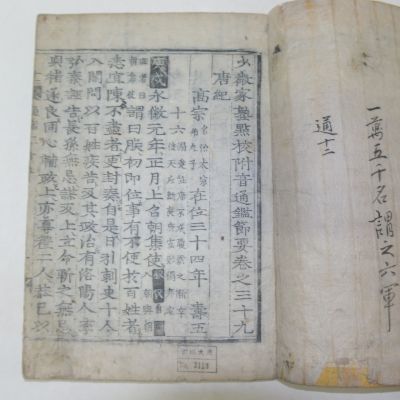 一萬五千名謂之六軍
通十二
少微家塾點校附音通鑑節要卷之三十九
唐紀
高宗 名治太宗 在位三十四年 壽五
十六
永徽元年正月上召朝集使
謂曰朕初即位事有不便於百姓者
悉宜陳不盡者更封奏自是日引刺史十人
入閤問以百姓疾苦及其政治有洛陽人李
弘泰誣告長孫無忌謀反上立命斬之無忌
與褚遂良同心輔政上亦尊禮二人恭己以